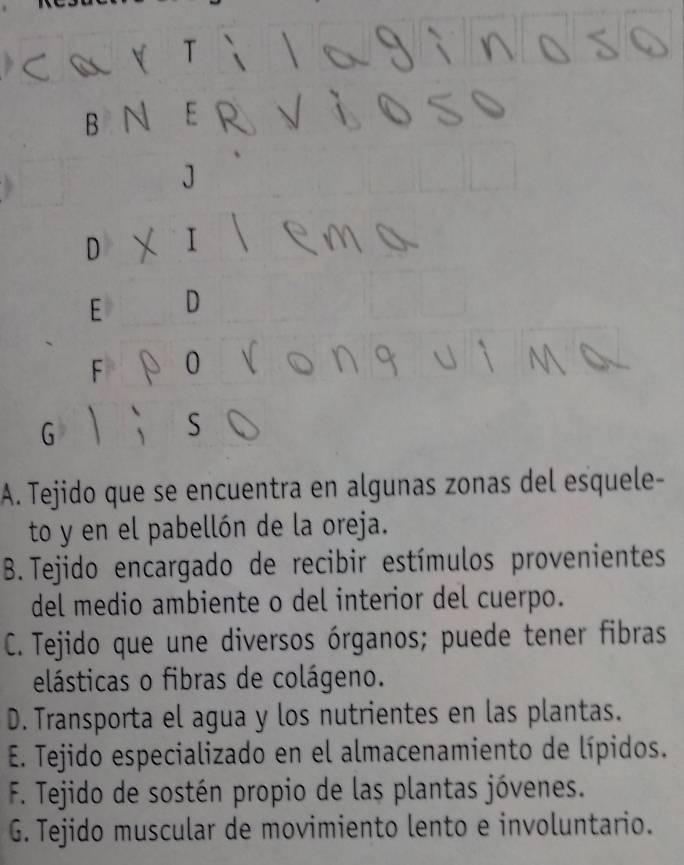 c a r T i l a g i n o s o
B N E R V i O S O
J
D X I l e m a
E D
F p O r o n q u i M a
G l i S O
A. Tejido que se encuentra en algunas zonas del esquele-
to y en el pabellón de la oreja.
B. Tejido encargado de recibir estímulos provenientes
del medio ambiente o del interior del cuerpo.
C. Tejido que une diversos órganos; puede tener fibras
elásticas o fibras de colágeno.
D. Transporta el agua y los nutrientes en las plantas.
E. Tejido especializado en el almacenamiento de lípidos.
F. Tejido de sostén propio de las plantas jóvenes.
G. Tejido muscular de movimiento lento e involuntario.